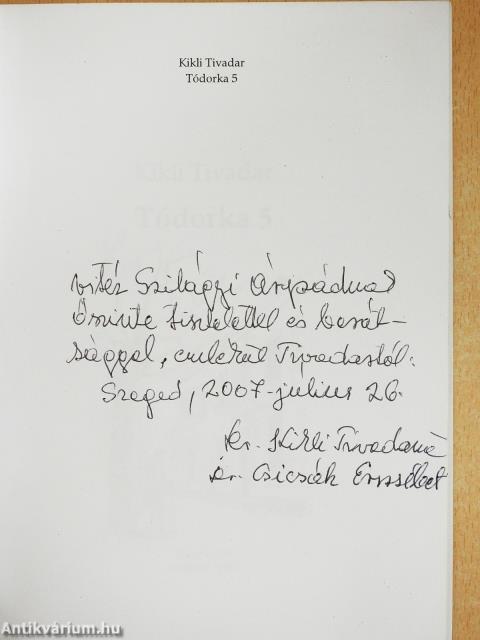 Kikli Tivadar
Tódorka 5
Kikli Tivadar
Tódorka 5
vitéz Szilágyi Árpádnak
Őszinte tisztelettel és barát-
sággal, emlékül Tivadartól:
Szeged, 2007. július 26.
dr. Kikli Tivadarné
dr. Csicsák Erzsébet
Antikvárium.hu